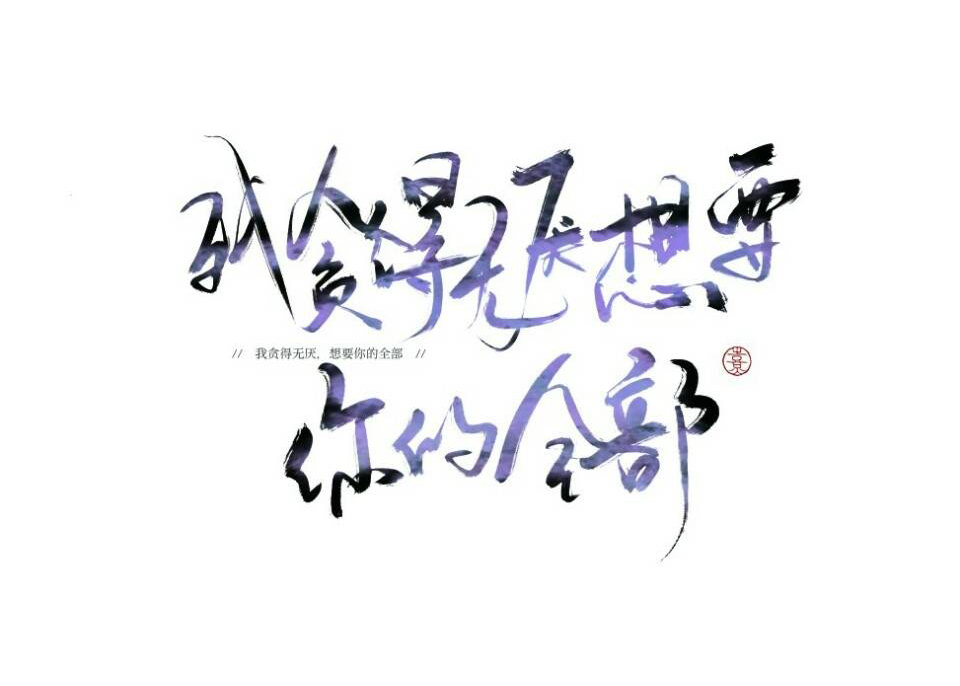 我贪得无厌想要
// 我贪得无厌，想要你的全部 //
你的全部